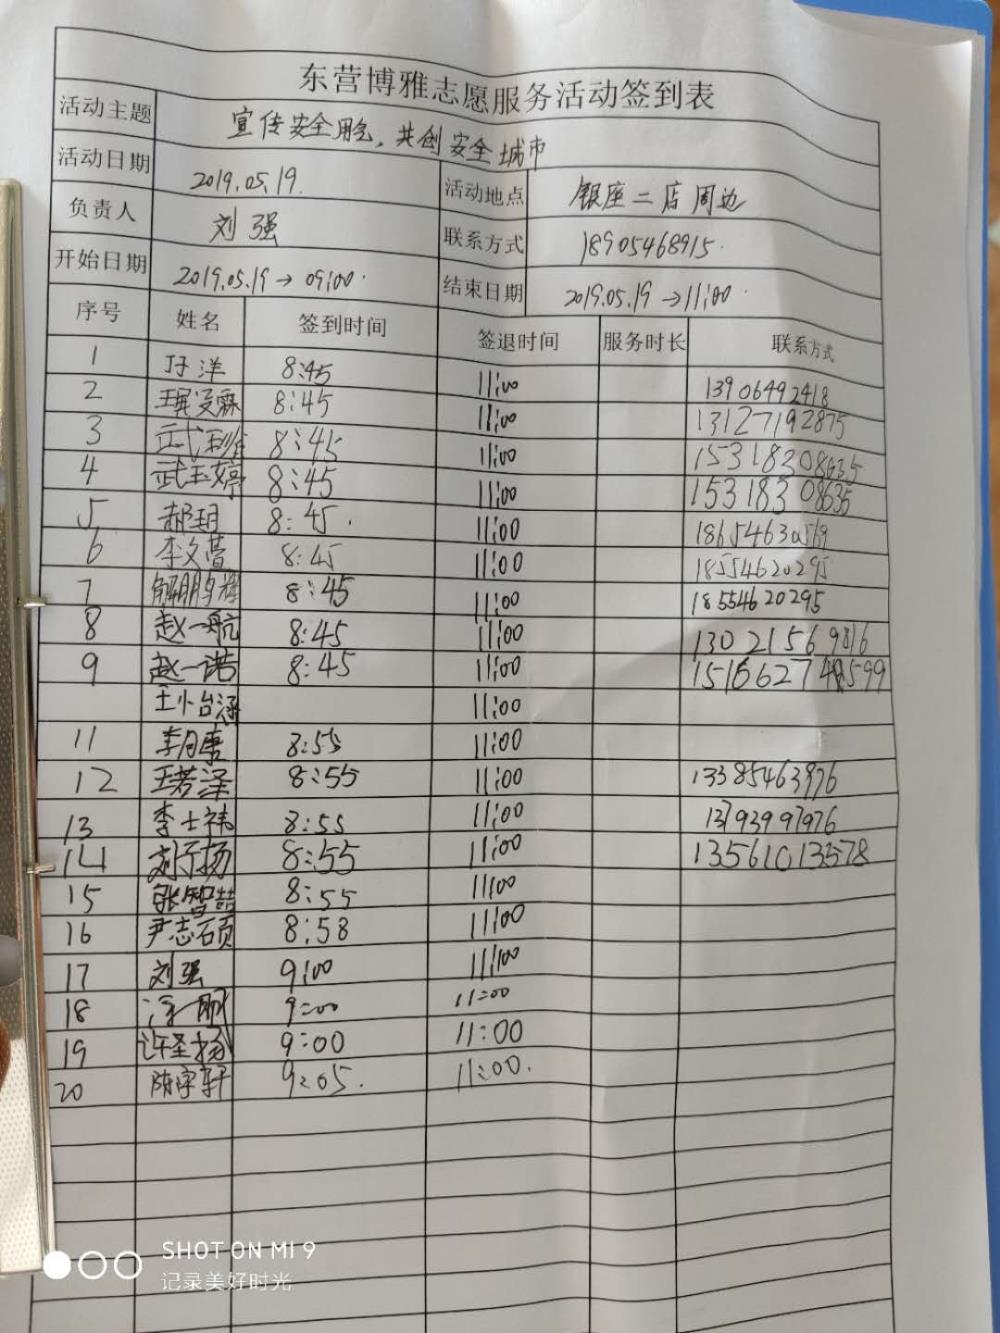 东营博雅志愿服务活动签到表
活动主题 宣传安全用气，共创安全城市
活动日期 2019.05.19. 活动地点 银座二店周边
负责人 刘强 联系方式 18905468915.
开始日期 2019.05.19→09:00. 结束日期 2019.05.19→11:00.
序号 姓名 签到时间 签退时间 服务时长 联系方式
1 孙洋 8:45 11:00 13906492418
2 8:45 11:00 13127192875
3 8:45 11:00 15318308635
4 武玉婷 8:45 11:00 15318308635
5 郝玥 8:45. 11:00
6 李文萱 8:45 11:00 18554620295
7 解鹏辉 8:45 11:00 18554620295
8 赵一航 8:45 11:00 13021569816
9 赵一诺 8:45 11:00
11:00
11 8:55 11:00
12 王若泽 8:55 11:00 13385463976
13 李士祎 8:55 11:00 13793997976
14 刘子扬 8:55 11:00 13561013578
15 张智喆 8:55 11:00
16 尹志硕 8:58 11:00
17 刘强 9:00 11:00
18 9:00 11:00
19 许圣扬 9:00 11:00
20 陈宇轩 9:05. 11:00.
SHOT ON MI 9
记录美好时光